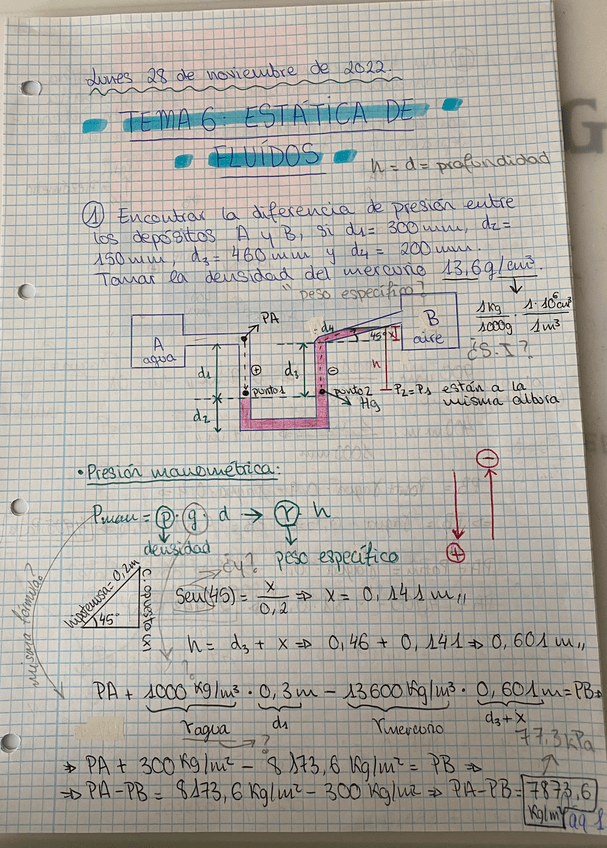 Lunes 28 de noviembre de 2022.
TEMA 6: ESTÁTICA DE
FLUÍDOS
h = d = profundidad
① Encontrar la diferencia de presión entre
los depósitos A y B, si d1= 300 mm, d2=
150 mm, d3 = 460 mm y d4 = 200 mm.
Tomar la densidad del mercurio 13,6 g/cm³.
"peso específico?
1kg/1000g · 1·10⁶cm³/1m³
¿S.I?
PA
A
agua
d4
45°
x
B
aire
d1
⊕
d3
⊖
h
punto 1
punto 2
P2=P1 están a la
misma altura
Hg
d2
• Presión manométrica:
Pman = ρ · g · d → γ · h
densidad
peso específico
⊖
⊕
¿misma fórmula?
hipotenusa = 0,2m
45°
C. opuesto = x
¿y?
Sen(45) = x/0,2 ⇒ x = 0,141 m,,
h = d3 + x ⇒ 0,46 + 0,141 ⇒ 0,601 m,,
?
PA + 1000 Kg/m³ · 0,3 m − 13600 Kg/m³ · 0,601 m = PB ⇒
γagua
d1
γmercurio
d3+x
?
77.3 kPa
⇒ PA + 300 Kg/m² − 8173,6 Kg/m² = PB ⇒
⇒ PA-PB = 8173,6 Kg/m² − 300 Kg/m² ⇒ PA-PB = 7873,6
Kg/m²